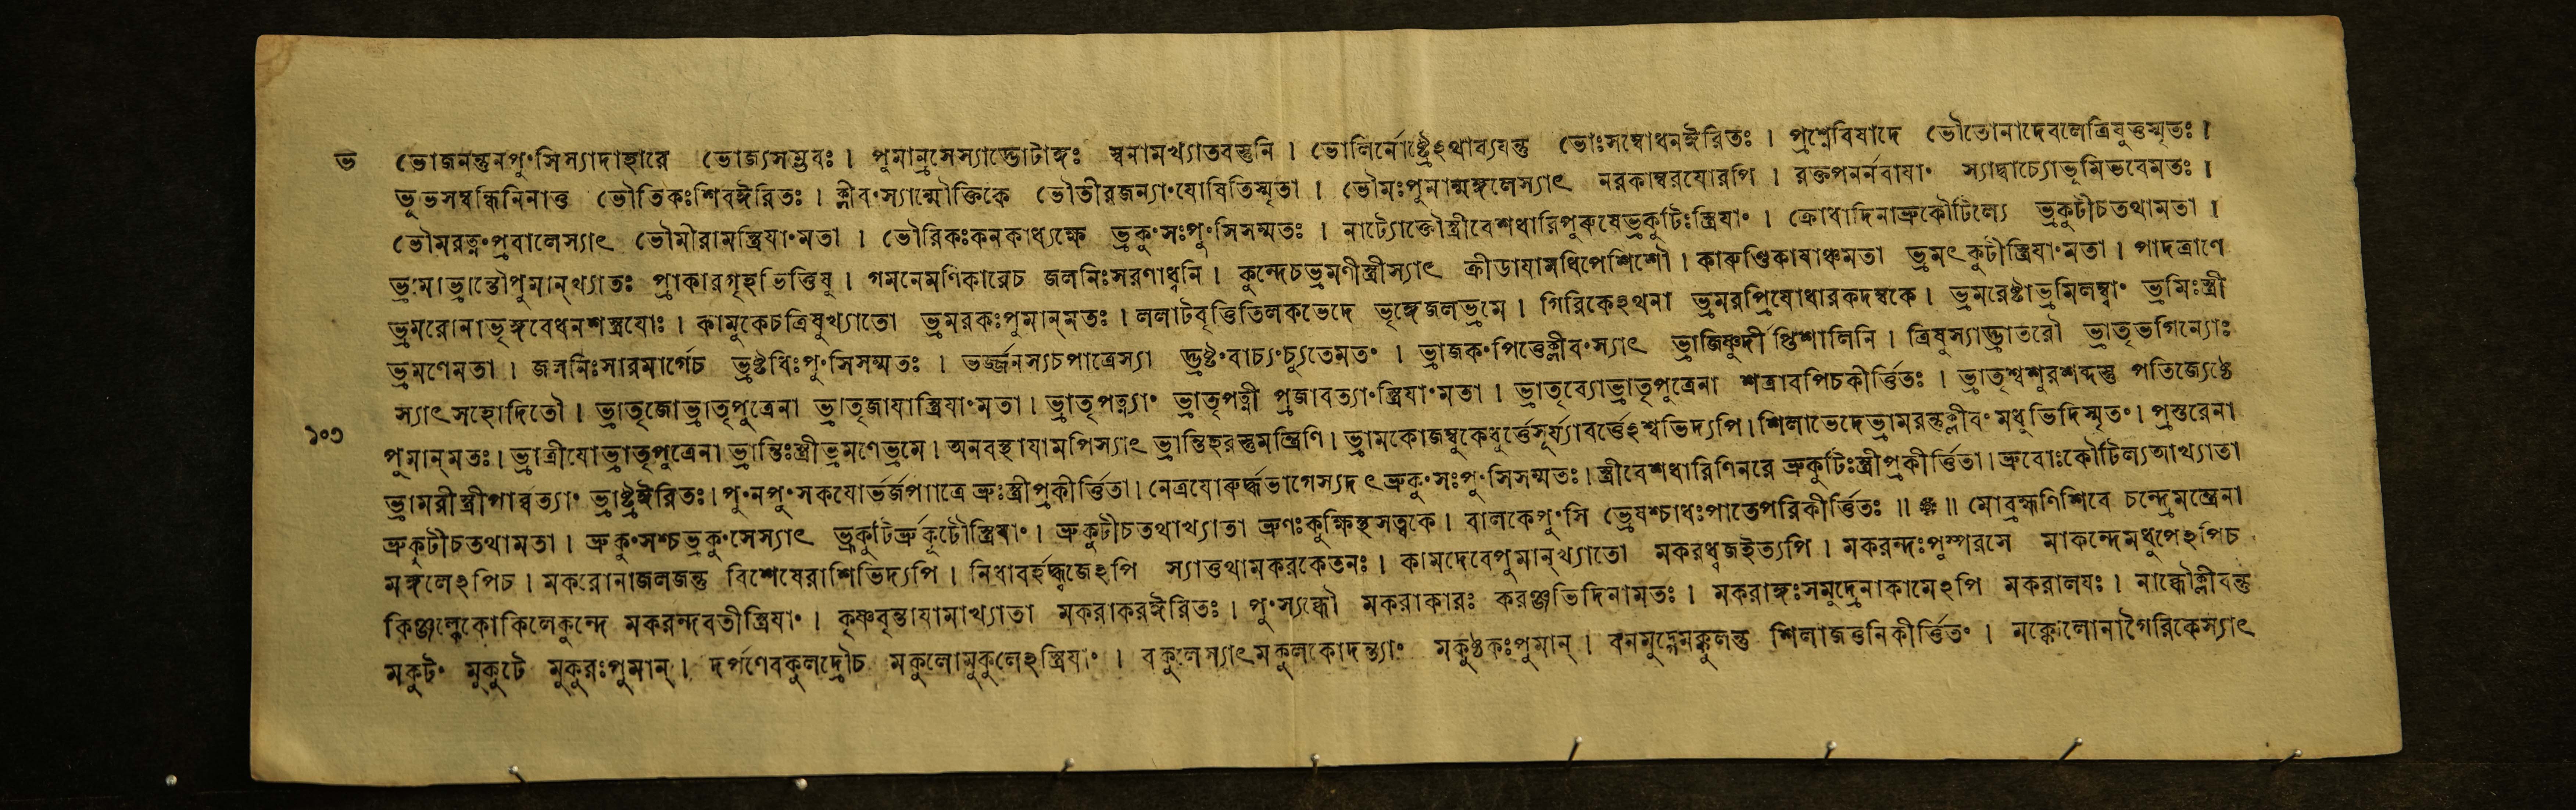 ভ ভোজনন্তুনপুংসিস্যাদাহারে ভোজ্যসম্ভবঃ। পুমান্রসেস্যাদ্ভোটাঙ্গঃ স্বনামখ্যাতবস্তুনি। ভোলির্নোষ্ট্রেঽথাব্যযন্তু ভোঃসম্বোধনঈরিতঃ। প্রশ্নেবিষাদে ভৌতোনাদেবলেত্রিষুত্তস্মৃতঃ।
ভূতসম্বন্ধিনিনাত্ত ভৌতিকঃশিবঈরিতঃ। ক্লীবংস্যান্মৌক্তিকে ভৌতীরজন্যাংযোষিতিস্মৃতা। ভৌমঃপুমান্মঙ্গলেস্যাৎ নরকাম্বরযোরপি। রক্তপনর্নবাযাং স্যাদ্বাচ্যোভূমিভবেমতঃ।
ভৌমরত্নংপ্রবালেস্যাৎ ভৌমীরামস্ত্রিযাংমতা। ভৌরিকঃকনকাধ্যক্ষে ভ্রকুংসঃপুংসিসম্মতঃ। নাট্যোক্তৌস্ত্রীবেশধারিপুরুষেভ্রকুটিঃস্ত্রিযাং। ক্রোধাদিনাভ্রুকৌটিল্যে ভ্রকুটীচতথামতা।
ভ্রমোভ্রান্তৌপুমান্খ্যাতঃ প্রাকারগৃহভিত্তিষু। গমনেমণিকারেচ জলনিঃসরণাধ্বনি। কুন্দেচভ্রমণীস্ত্রীস্যাৎ ক্রীডাযামধিপেশিশৌ। কারুণ্ডিকাযাঞ্চমতা ভ্রমৎকুটীস্ত্রিযাংমতা। পাদত্রাণে
ভ্রমরোনাভৃঙ্গবেধনশস্ত্রযোঃ। কামুকেচত্রিষুখ্যাতো ভ্রমরকঃপুমান্মতঃ। ললাটবৃত্তিতিলকভেদে ভৃঙ্গেজলভ্রমে। গিরিকেঽথনা ভ্রমরপ্রিযোধারকদম্বকে। ভ্রমরেষ্টাভূমিলম্ব্বাং ভ্রমিঃস্ত্রী
ভ্রমণেমতা। জলনিঃসারমার্গেচ ভ্রষ্টধিঃপুংসিসম্মতঃ। ভর্জ্জনস্যচপাত্রেস্যা দ্ভ্রষ্টংবাচ্যংচ্যুতেমতং। ভ্রাজকংপিত্তেক্লীবংস্যাৎ ভ্রাজিষ্ণুর্দীপ্তিশালিনি। ত্রিষুস্যাদ্ভ্রাতরৌ ভ্রাতৃভগিন্যোঃ
স্যাৎসহোদিতৌ। ভ্রাতৃজোভ্রাতৃপুত্রেনা ভ্রাতৃজাযাস্ত্রিযাংমতা। ভ্রাতৃপত্ন্যাং ভ্রাতৃপত্নী প্রজাবত্যাংস্ত্রিযাংমতা। ভ্রাতৃব্যোভ্রাতৃপুত্রেনা শত্রাবপিচকীর্ত্তিতঃ। ভ্রাতৃশ্বশুরশব্দস্তু পতিজ্যেষ্ঠে
১০৩ পুমান্মতঃ। ভ্রাত্রীযোভ্রাতৃপুত্রেনা ভ্রান্তিঃস্ত্রীভ্রমণেভ্রমে। অনবস্থাযামপিস্যাৎ ভ্রান্তিহরস্তুমন্ত্রিণি। ভ্রামকোজম্বুকেধূর্ত্তেসূর্য্যাবর্ত্তেঽশ্বভিদ্যপি। শিলাভেদেভ্রামরন্তুক্লীবং মধুভিদিস্মৃতং। প্রস্তরেনা
ভ্রামরীস্ত্রীপার্ব্বত্যাং ভ্রাষ্ট্রঈরিতঃ। পুংনপুংসকযোর্ভর্জপাাত্রে ভ্রূঃস্ত্রীপ্রকীর্ত্তিতা। নেত্রযোরূর্দ্ধভাগেস্যদৎভ্রুকুংসঃপুংসিসম্মতঃ। স্ত্রীবেশধারিণিনরে ভ্রুকুটিঃস্ত্রীপ্রকীর্ত্তিতা। ভ্রুবোঃকৌটিল্যআখ্যাতা
ভ্রুকুটীচতথামতা। ভ্রুকুংসশ্চভ্রকুংসেস্যাৎ ভ্রূকুটির্ভ্রুকূটৌস্ত্রিযাং। ভ্রুকুটীচতথাখ্যাতা ভ্রুণঃকুক্ষিস্থসত্ত্বকে। বালকেপুংসি ভ্রেষশ্চাধঃপাতেপরিকীর্ত্তিতঃ॥ ॥ মোব্রহ্মণিশিবে চন্দ্রেমন্ত্রেনা
মঙ্গলেঽপিচ। মকরোনাজলজন্তু বিশেষেরাশিভিদ্যপি। নিধাবর্হদ্ধ্বজেঽপি স্যাত্তথামকরকেতনঃ। কামদেবেপুমান্খ্যাতো মকরধ্বজইত্যপি। মকরন্দঃপুষ্পরসে মাকন্দেমধুপেঽপিচ
কিঞ্জল্কেকোকিলেকুন্দে মকরন্দবতীস্ত্রিযাং। কৃষ্ণবৃন্তাযামাখ্যাতা মকরাকরঈরিতঃ। পুংস্যব্ধৌ মকরাকারঃ করঞ্জভিদিনামতঃ। মকরাঙ্কঃসমুদ্রেনাকামেঽপি মকরালযঃ। নাব্ধৌক্লীবন্তু
মকুটং মুকুটে মুকুরঃপুমান্। দর্পণেবকুলদ্রৌচ মকুলোমুকুলেঽস্ত্রিযাং। বকুলেস্যাৎমকুলকোদন্ত্যাং মকুষ্ঠকঃপুমান্। বনমুদ্গেমক্কুলন্তু শিলাজত্তনিকীর্ত্তিতং। মক্কোলোনাগৈরিকেস্যাৎ